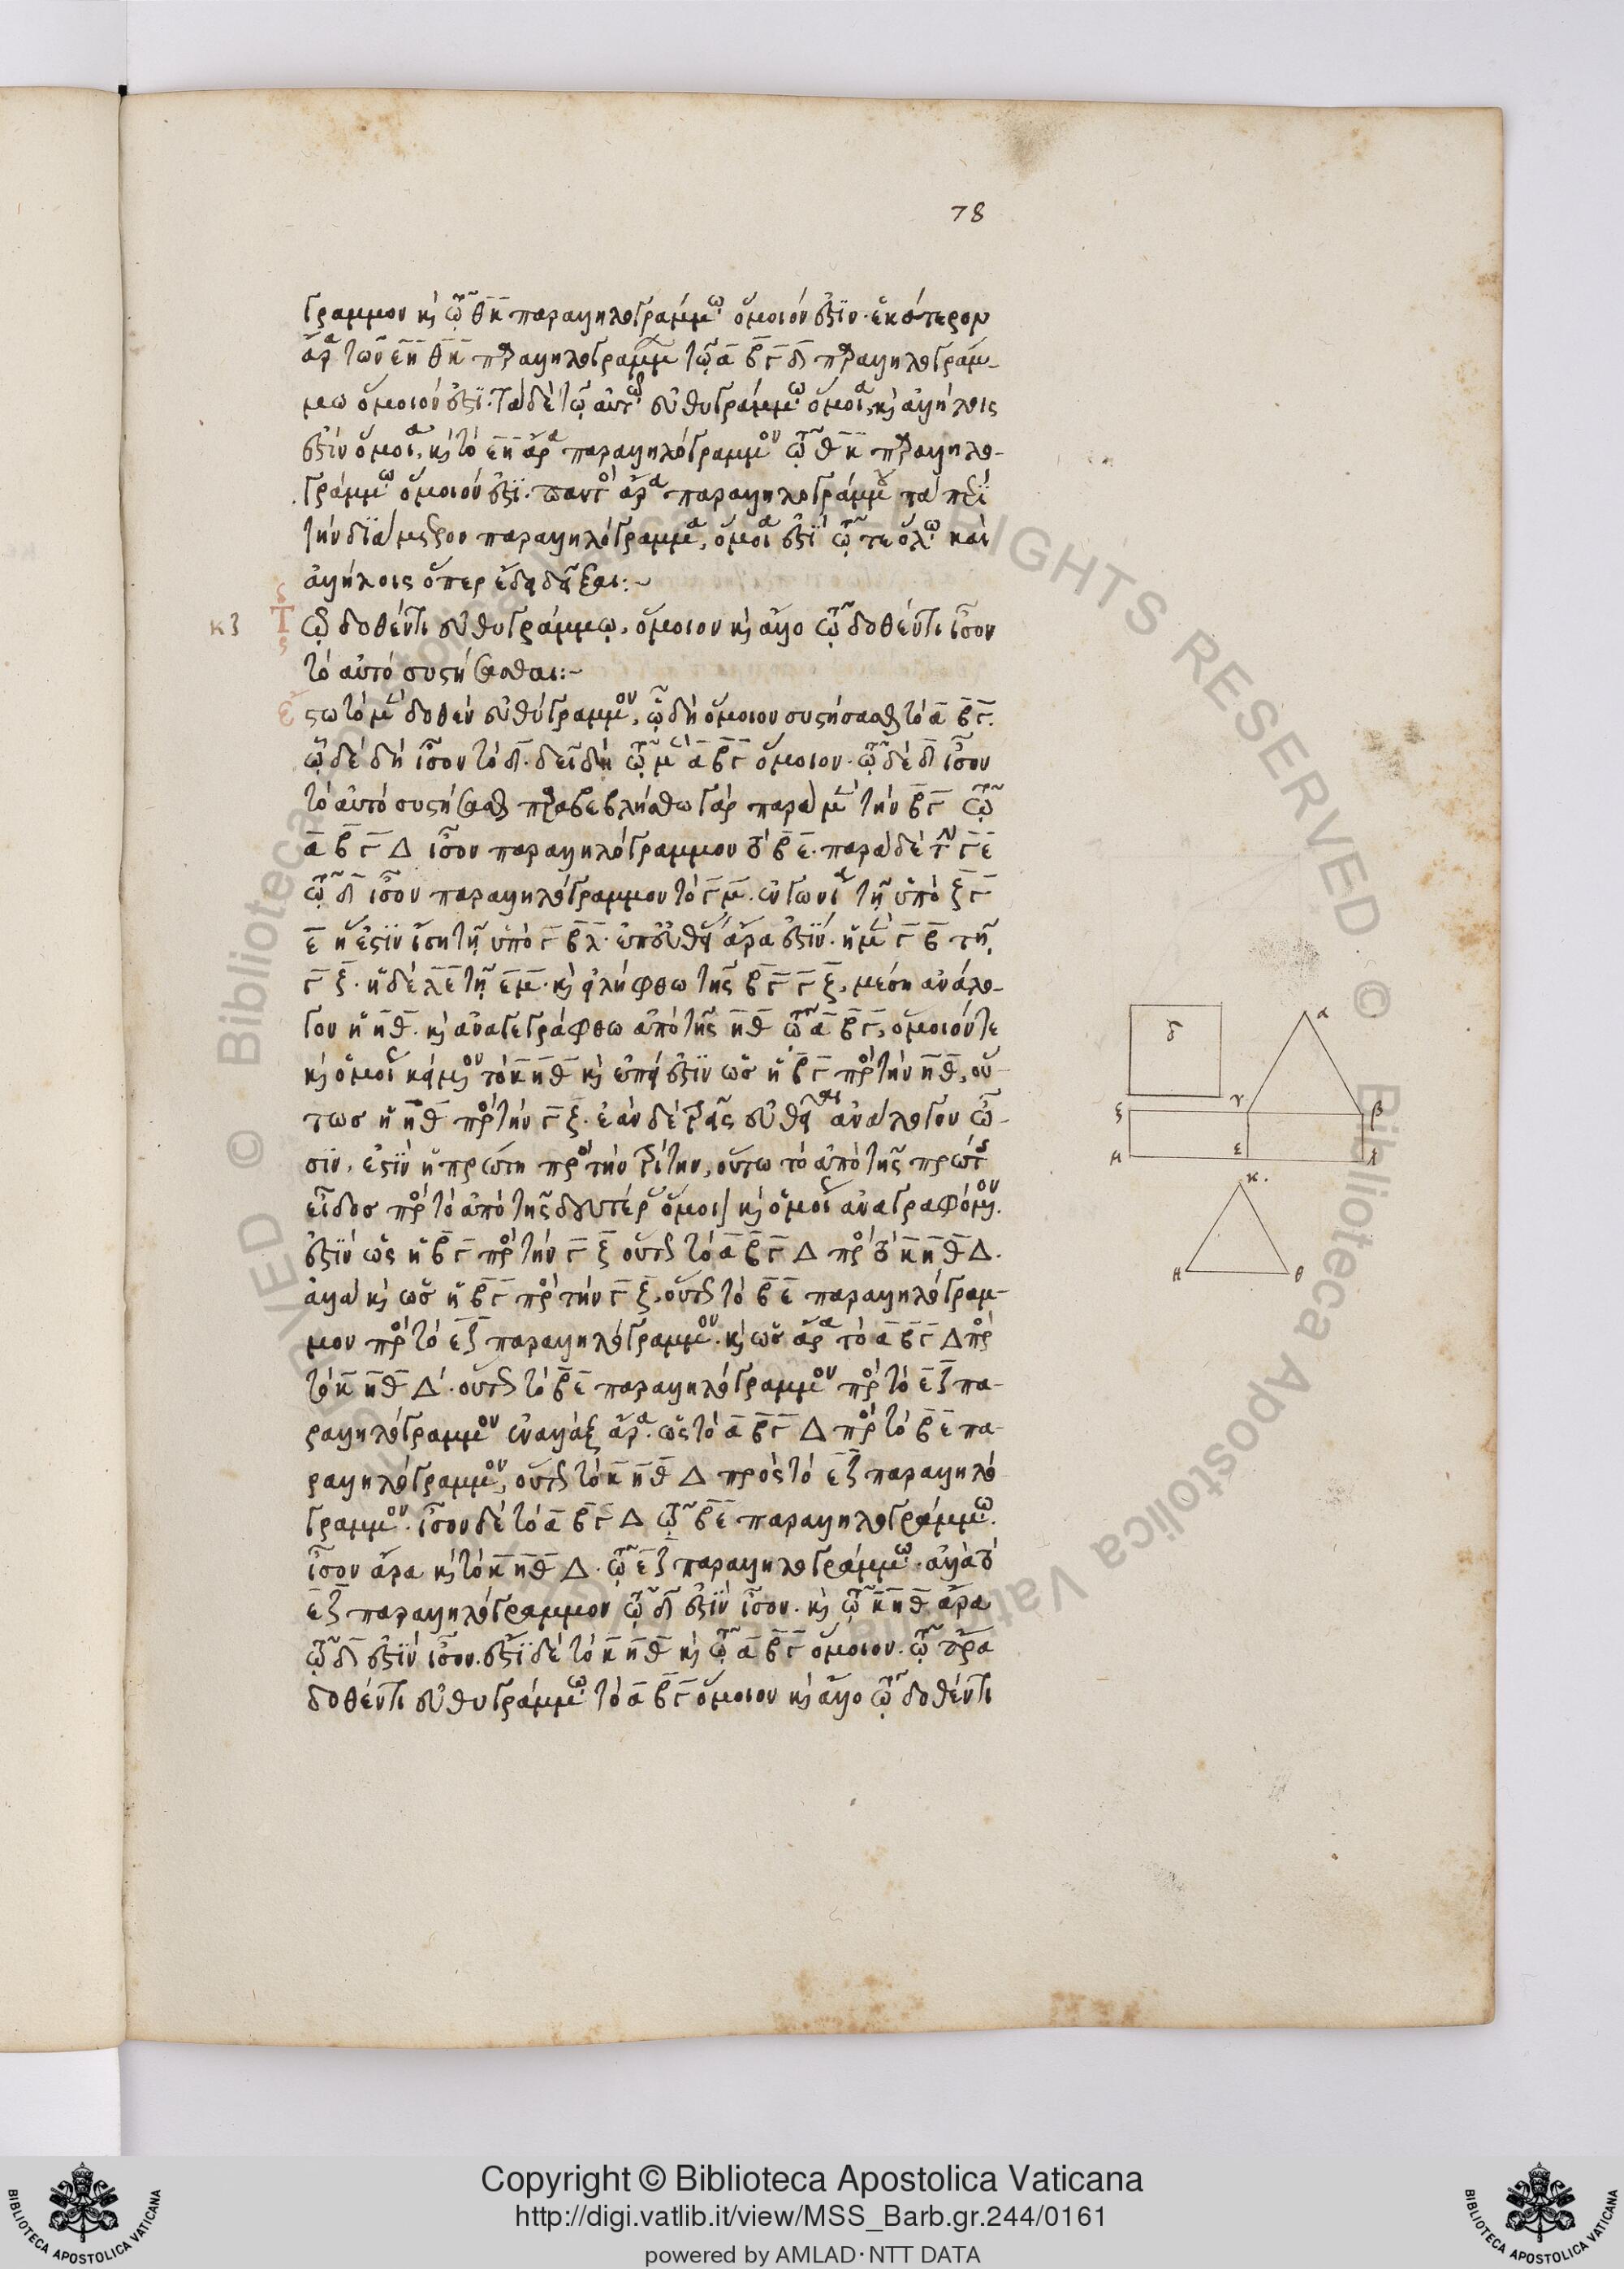 78
γραμμον κ τῷ θκ παραλληλογράμμῳ ὅμοιόν ἐστϊν· ἑκάτερον
ἄρα τῶν εη θκ πραλληλογράμμ τῷ α β γ δ πραλληλογράμ-
μω ὅμοιόν ἐστϊ· τὰ δὲ τῷ αὐτῷ εὐθυγράμμῳ ὅμοια, κ ἀλλήλοις
ἐστϊν ὅμοια, κ τὸ εη ἄρα παραλληλόγραμμον τῷ θ κ πραλληλο-
γράμμῳ ὅμοιόν ἐστϊ· παντὸς ἄρα παραλληλογράμμου τὰ περὶ
τὴν δϊάμετρον παραλληλόγραμμα, ὅμοια ἐστϊ τῷ τε ὅλῳ καὶ
ἀλλήλοις ὅπερ ἔδει δεῖξαι:~
κζ Τῷ δοθέντι εὐθυγράμμῳ, ὅμοιον κ ἄλλο τῷ δοθέντι ἴσον
τὸ αὐτὸ συστήσασθαι:~
Ἔστω τὸ μὲν δοθὲν εὐθύγραμμον, ᾧ δὴ ὅμοιον συστήσασθαι τὸ α β γ.
ᾧ δὲ δὴ ἴσον τὸ δ. δεῖ δὴ τῷ μὲν α β γ ὅμοιον· τῷ δὲ δ ἴσον
τὸ αὐτὸ συστήσασθαι πραβεβλήσθω γὰρ παρὰ μὲν τὴν β γ τῷ
α β γ Δ ἴσον παραλληλόγραμμον τὸ β ε. παρὰ δὲ τὴν γ ε
τῷ δ ἴσον παραλληλόγραμμον τὸ γ μ. ἐν γωνία τῇ ὑπὸ ξ γ
ε ἥ ἐστϊν ἴση τῇ ὑπὸ γ β λ· ἐπ εὐθείας ἄρα ἐστϊν. ἡ μὲν γ β τῇ
γ ξ. ἡ δὲ λ ε τῇ ε μ. κ εἰλήφθω τῆς β γ γ ξ, μέση ἀνάλο-
γον ἡ η θ. κ ἀναγεγράφθω ἀπὸ τῆς η θ τῷ α β γ, ὅμοιόν τε
κ ὁμοίως κείμενον τὸ κ η θ κ ἐπεί ἐστϊν ὡς ἡ β γ πρὸς τὴν η θ, οὕ-
τως ἡ η θ πρὸς τὴν γ ξ. ἐὰν δὲ τρεῖς εὐθεῖαι ἀνάλογον ὦ-
σϊν, ἐστϊν ἡ πρώτη πρὸς τὴν τρίτην, οὕτω τὸ ἀπὸ τῆς πρώτης
εἶδος πρὸς τὸ ἀπὸ τῆς δευτέρας ὅμοιον κ ὁμοίως ἀναγραφόμενον.
ἐστϊν ὡς ἡ β γ πρὸς τὴν γ ξ οὕτως τὸ α β γ Δ πρὸς τὸ κ η θ Δ.
ἀλλὰ κ ὡς ἡ β γ πρὸς τὴν γ ξ, οὕτως τὸ β ε παραλληλόγραμ-
μον πρὸς τὸ εζ παραλληλόγραμμον. κ ὡς ἄρα τὸ α β γ Δ πρὸς
τὸ κ η θ Δ. οὕτως τὸ β ε παραλληλόγραμμον πρὸς τὸ ε ζ πα-
ραλληλόγραμμον ἐναλλὰξ ἄρα. ὡς τὸ α β γ Δ πρὸς τὸ β ε πα-
ραλληλόγραμμον, οὕτως τὸ κ η θ Δ πρὸς τὸ εζ παραλληλό
γραμμον. ἴσον δὲ τὸ α β γ Δ τῷ β ε παραλληλογράμμῳ.
ἴσον ἄρα κ τὸ κ η θ Δ. τῷ ε ζ παραλληλογράμμῳ. ἀλλὰ τὸ
ε ζ παραλληλόγραμμον τῷ δ ἐστϊν ἴσον. κ τῷ κ η θ ἄρα
τῷ δ ἐστϊν ἴσον. ἐστϊ δὲ τὸ κ η θ κ τῷ α β γ ὅμοιον. τῷ ἄρα
δοθέντι εὐθυγράμμῳ τὸ α β γ ὅμοιον κ ἄλλο τῷ δοθέντι
δ α
ξ γ β
μ ε λ
κ.
η θ
Copyright © Biblioteca Apostolica Vaticana
http://digi.vatlib.it/view/MSS_Barb.gr.244/0161
powered by AMLAD·NTT DATA
BIBLIOTECA APOSTOLICA VATICANA
BIBLIOTECA APOSTOLICA VATICANA